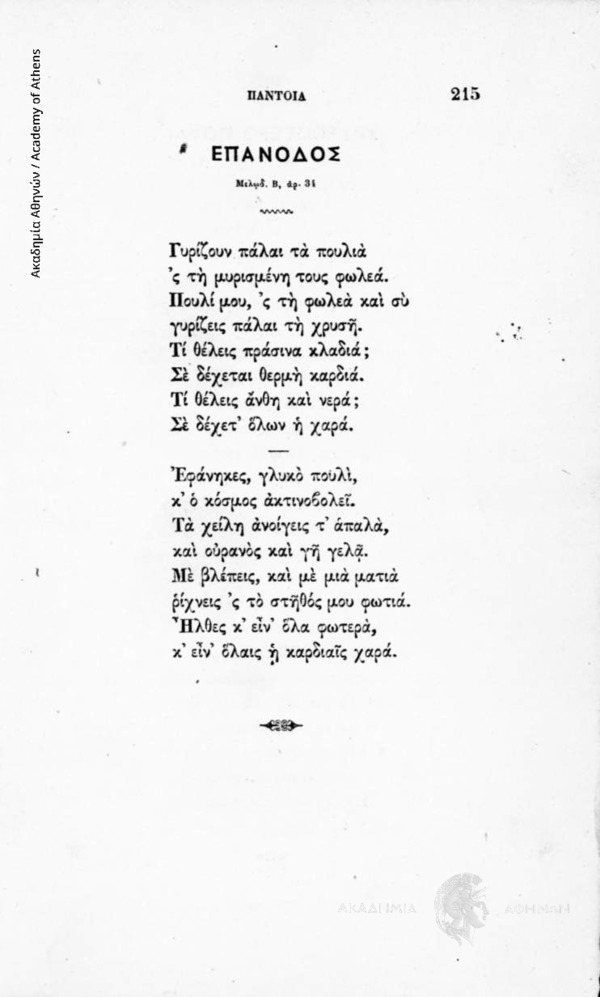 Ακαδημία Αθηνών / Academy of Athens
ΠΑΝΤΟΙΑ 215
ΕΠΑΝΟΔΟΣ
Μελῳδ. Β, ἀρ. 34
Γυρίζουν πάλαι τὰ πουλιὰ
'ς τὴ μυρισμένη τους φωλεά.
Πουλί μου, 'ς τὴ φωλεὰ καὶ σὺ
γυρίζεις πάλαι τὴ χρυσῆ.
Τί θέλεις πράσινα κλαδιά;
Σὲ δέχεται θερμὴ καρδιά.
Τί θέλεις ἄνθη καὶ νερά;
Σὲ δέχετ' ὅλων ἡ χαρά.
Ἐφάνηκες, γλυκὸ πουλὶ,
κ' ὁ κόσμος ἀκτινοβολεῖ.
Τὰ χείλη ἀνοίγεις τ' ἁπαλὰ,
καὶ οὐρανὸς καὶ γῆ γελᾷ.
Μὲ βλέπεις, καὶ μὲ μιὰ ματιὰ
ῥίχνεις 'ς τὸ στῆθός μου φωτιά.
Ἦλθες κ' εἶν' ὅλα φωτερὰ,
κ' εἶν' ὅλαις ᾑ καρδιαῖς χαρά.
ΑΚΑΔΗΜΙΑ ΑΘΗΝΩΝ